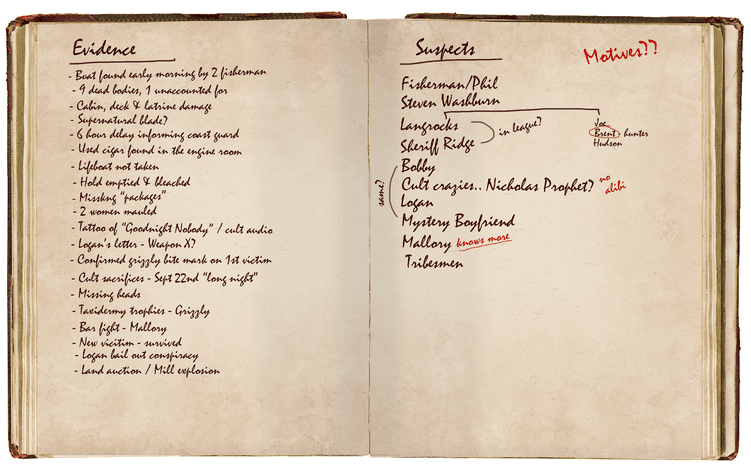 Evidence
- Boat found early morning by 2 fisherman
- 9 dead bodies, 1 unaccounted for
- Cabin, deck & latrine damage
- Supernatural blade?
- 6 hour delay informing coast guard
- Used cigar found in the engine room
- Lifeboat not taken
- Hold emptied & bleached
- Misskng "packages"
- 2 women mauled
- Tattoo of "Goodnight Nobody" / cult audio
- Logan's letter - Weapon X?
- Confirmed grizzly bite mark on 1st victim
- Cult sacrifices - Sept 22nd "long night"
- Missing heads
- Taxidermy trophies - Grizzly
- Bar fight - Mallory
- New vicitim - survived
- Logan bail out conspiracy
- Land auction / Mill explosion
Suspects
Motives??
Fisherman/Phil
Steven Washburn
Langrocks
Sheriff Ridge
in league?
Joe
Brent - hunter
Hudson
Bobby
Cult crazies.. Nicholas Prophet? no alibi
Logan
same?
Mystery Boyfriend
Mallory knows more
Tribesmen